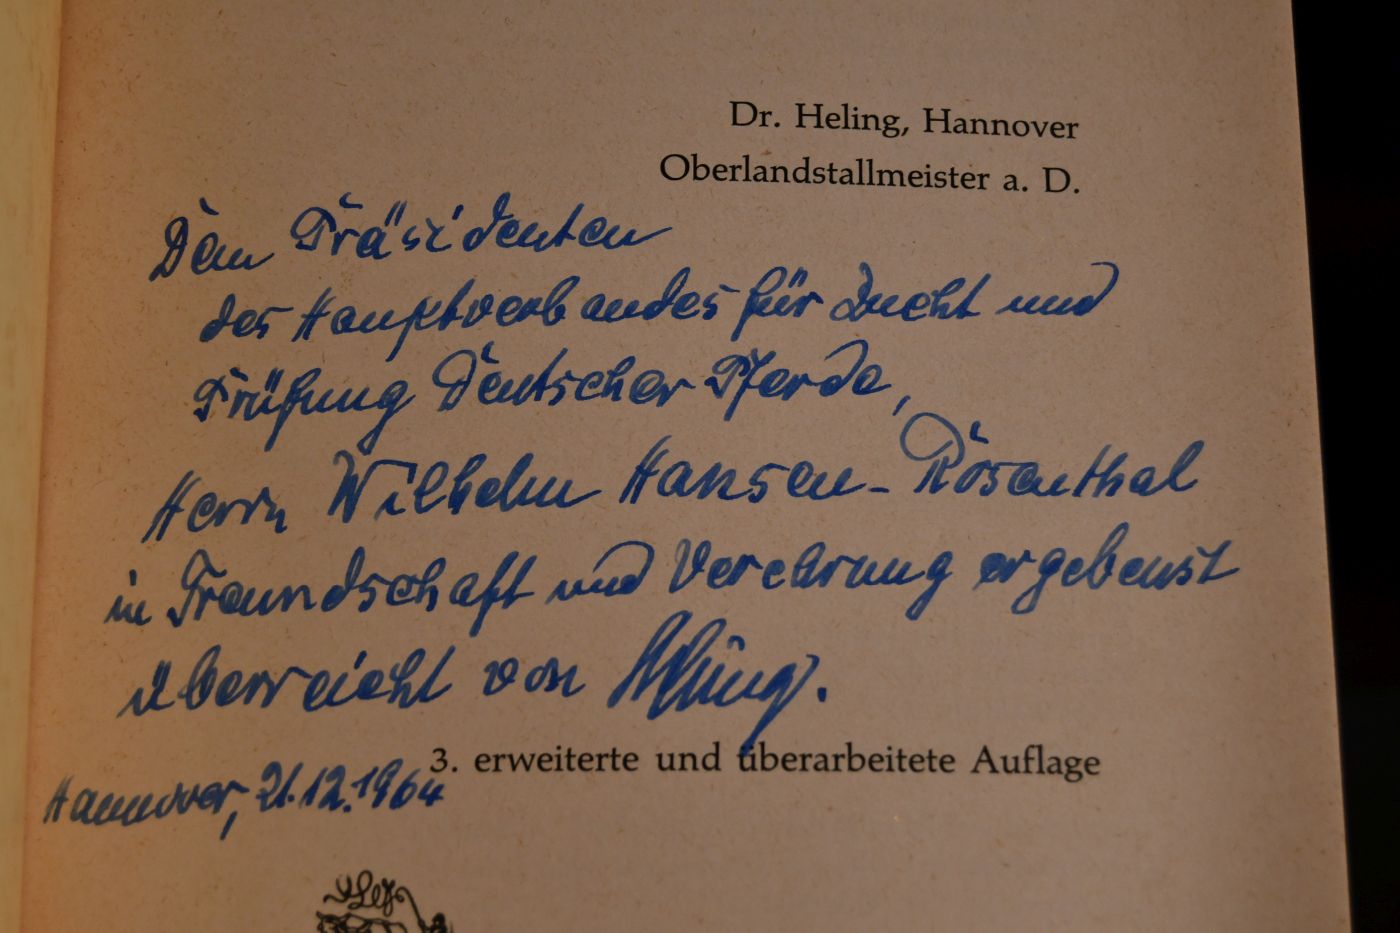 Dr. Heling, Hannover
Oberlandstallmeister a. D.
Dem Präsidenten
des Hauptverbandes für Zucht und
Prüfung Deutscher Pferde,
Herrn Wilhelm Hansen-Rosenthal
in Freundschaft und Verehrung ergebenst
überreicht von Heling.
3. erweiterte und überarbeitete Auflage
Hannover, 21.12.1964